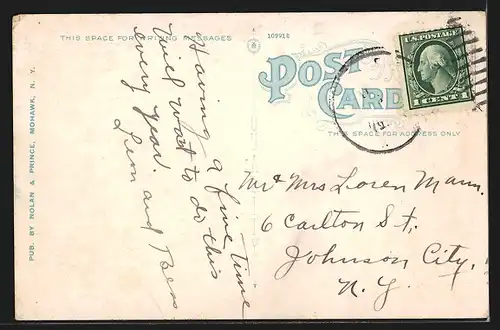 THIS SPACE FOR WRITING MESSAGES
109918
U.S. POSTAGE
1 CENT 1
POST
CARD
THIS SPACE FOR ADDRESS ONLY
PUB. BY NOLAN & PRINCE, MOHAWK, N. Y.
Having a fine time
Will want to do this
every year.
Leon and Bess
Mr Mrs Loren Mann.
6 Carlton St,
Johnson City,
N. Y.